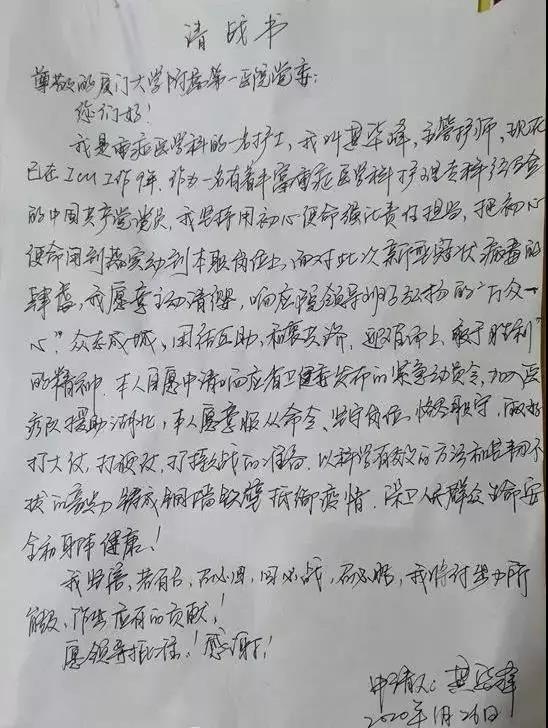 请战书
尊敬的厦门大学附属第一医院党委:
您们好!
我是重症医学科的一名护士,我叫 ,主管护师,现
已在ICU工作9年.作为一名有着丰富重症医学科护理专科经验
的中国共产党党员,我坚持用初心使命强化责任担当,把初心
使命落实到本职岗位上,面对此次新型冠状病毒的
肆虐,我愿意主动请缨,响应院领导 弘扬的"万众一
心"众志成城、团结互助、和衷共济、迎难而上、敢于胜利"
的精神.本人自愿申请响应省卫健委发布的紧急动员令,加入医
疗队援助湖北,本人愿意服从命令、坚守岗位、恪尽职守,做好
打大仗,打硬仗,打持久战的准备.以科学有效的方法和坚韧不
拔的意志力铸成铜墙铁壁抵御疫情.保卫人民群众生命安
全和身体健康!
我坚信,若有召,召必回,回必战,战必胜,我将付出力所
能及,作出应有的贡献!
愿领导批准!感谢!
申请人:
2020年1月26日